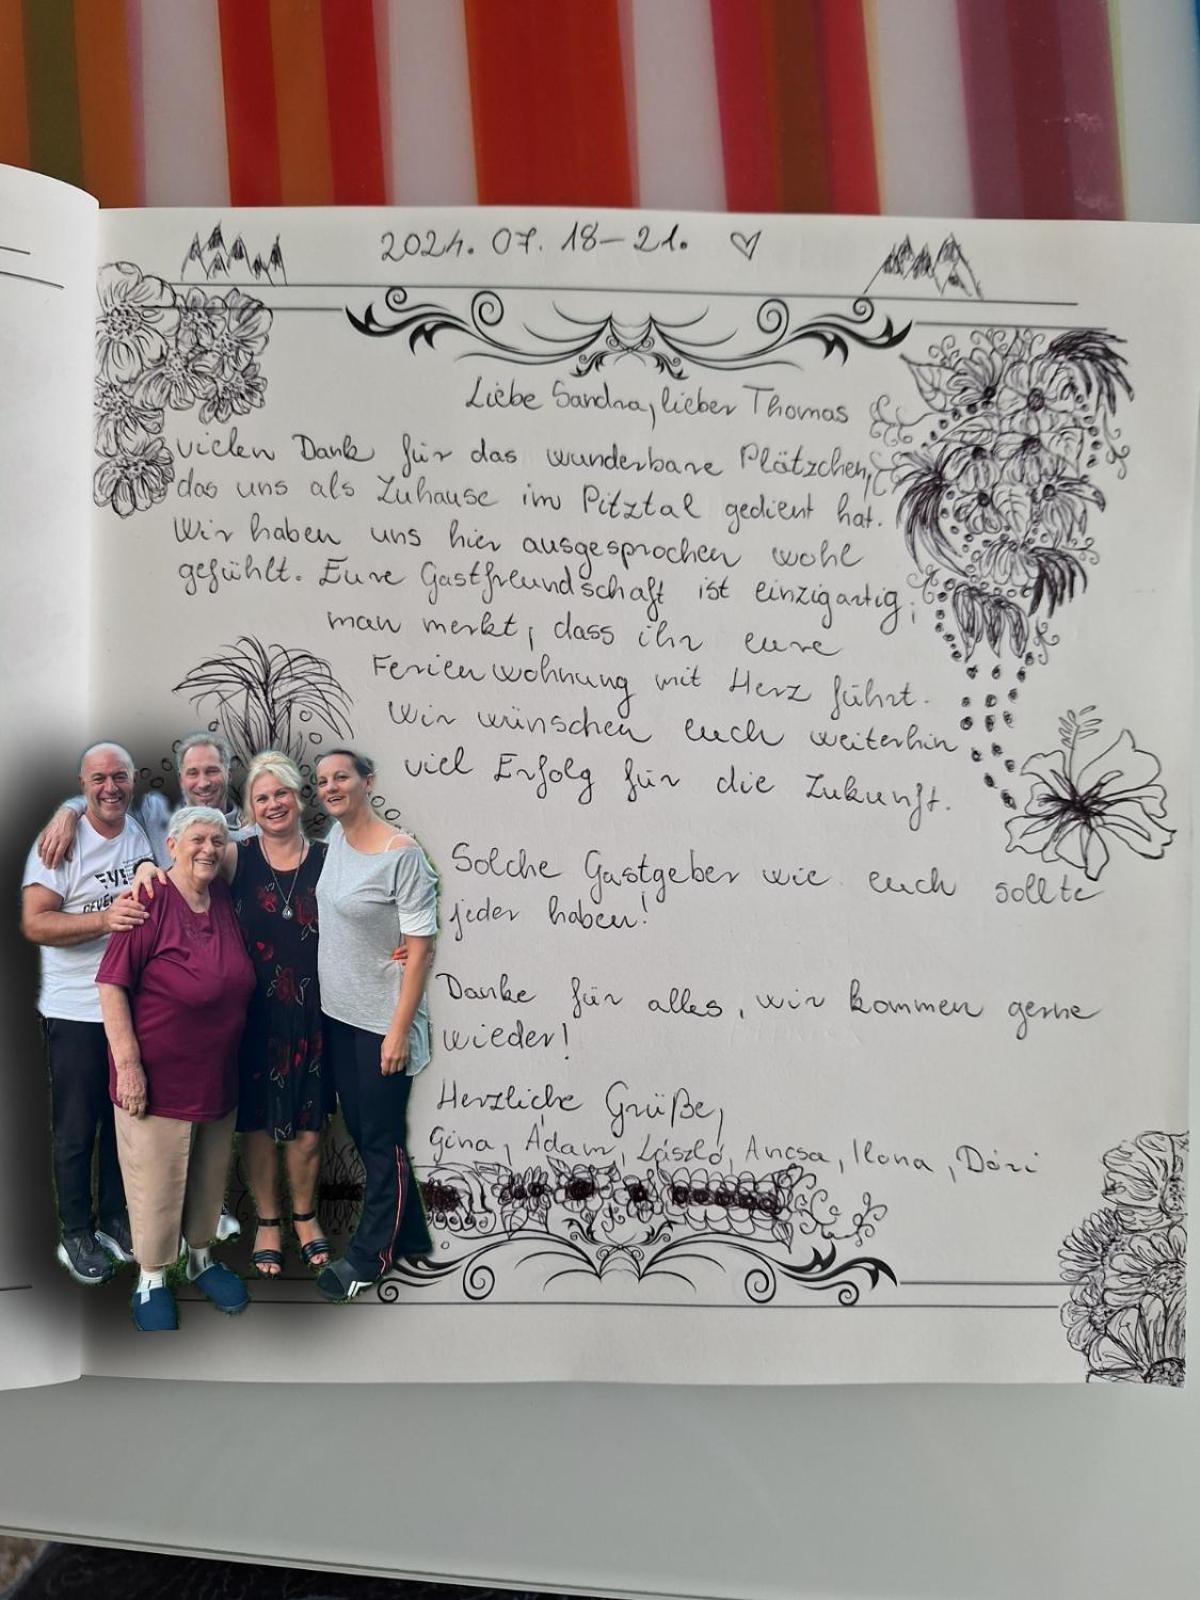 2024. 07. 18-21. ♡
Liebe Sandra, lieber Thomas
vielen Dank für das wunderbare Plätzchen,
das uns als Zuhause im Pitztal gedient hat.
Wir haben uns hier ausgesprochen wohl
gefühlt. Eure Gastfreundschaft ist einzigartig,
man merkt, dass ihr eure
Ferienwohnung mit Herz führt.
Wir wünschen euch weiterhin
viel Erfolg für die Zukunft.
Solche Gastgeber wie euch sollte
jeder haben!
Danke für alles, wir kommen gerne
wieder!
Herzliche Grüße,
Gina, Ádám, László, Ancsa, Ilona, Dóri